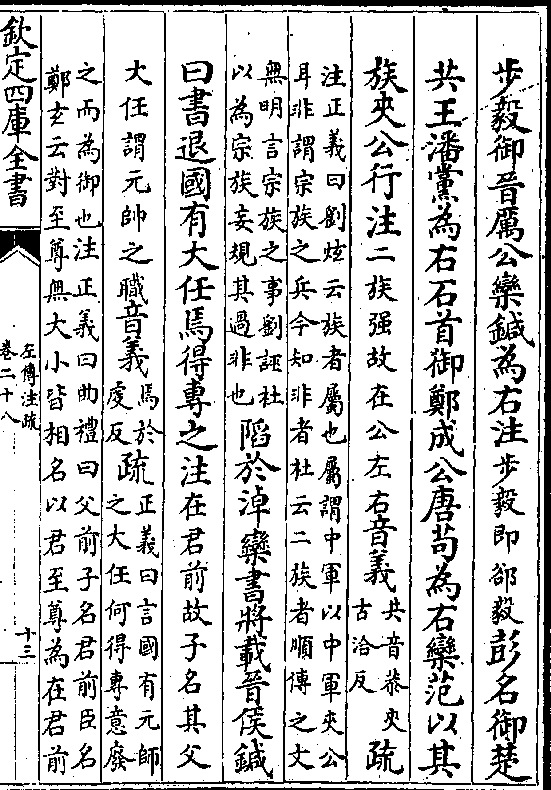 步毅御晉厲公欒鍼為右注步毅即郤毅彭名御楚
共王潘黨為右石首御鄭成公唐苟為右欒范以其
族夾公行注二族强故在公左右音義
共音恭夾
古洽反
疏
注正義曰劉炫云族者屬也屬謂中軍以中軍夾公
耳非謂宗族之兵今知非者杜云二族者順傳之文
無明言宗族之事劉誣杜
以為宗族妄規其過非也
陷於淖欒書將載晉侯鍼
曰書退國有大任焉得專之注在君前故子名其父
大任謂元帥之職音義
焉於
虔反
疏
正義曰言國有元師
之大任何得專意廢
之而為御也注正義曰曲禮曰父前子名君前臣名
鄭玄云對至尊無大小皆相名以君至尊為在君前
欽定四庫全書
左傳注疏
卷二十八
十三